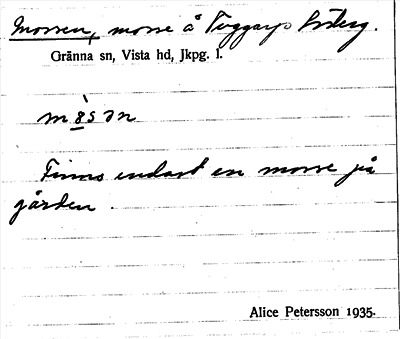 Morsen, morse å Tuggarps Östeg.
Gränna sn, Vista hd, Jkpg. l.
Finns endast en morse på
gården.
Alice Petersson 1935.